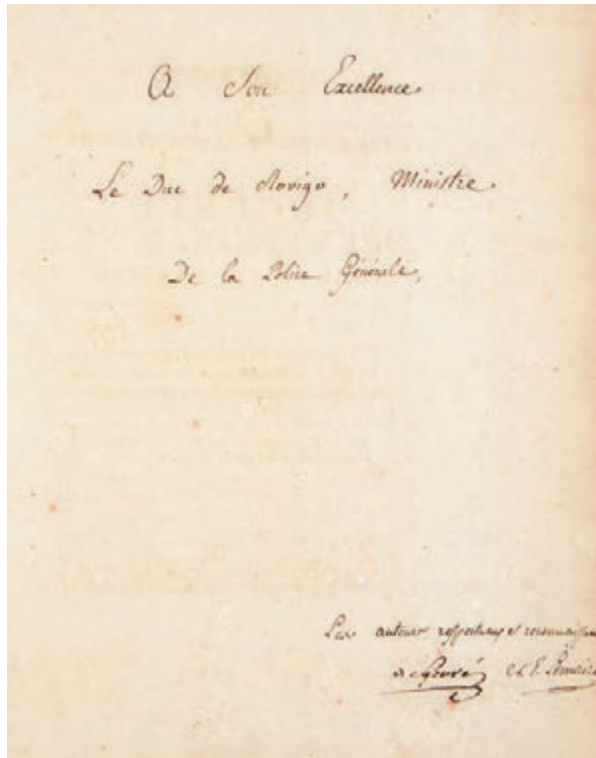 A Son Excellence
Le Duc de Rovigo, Ministre
De la Police Générale,
Les auteurs respectueux et reconnaissan